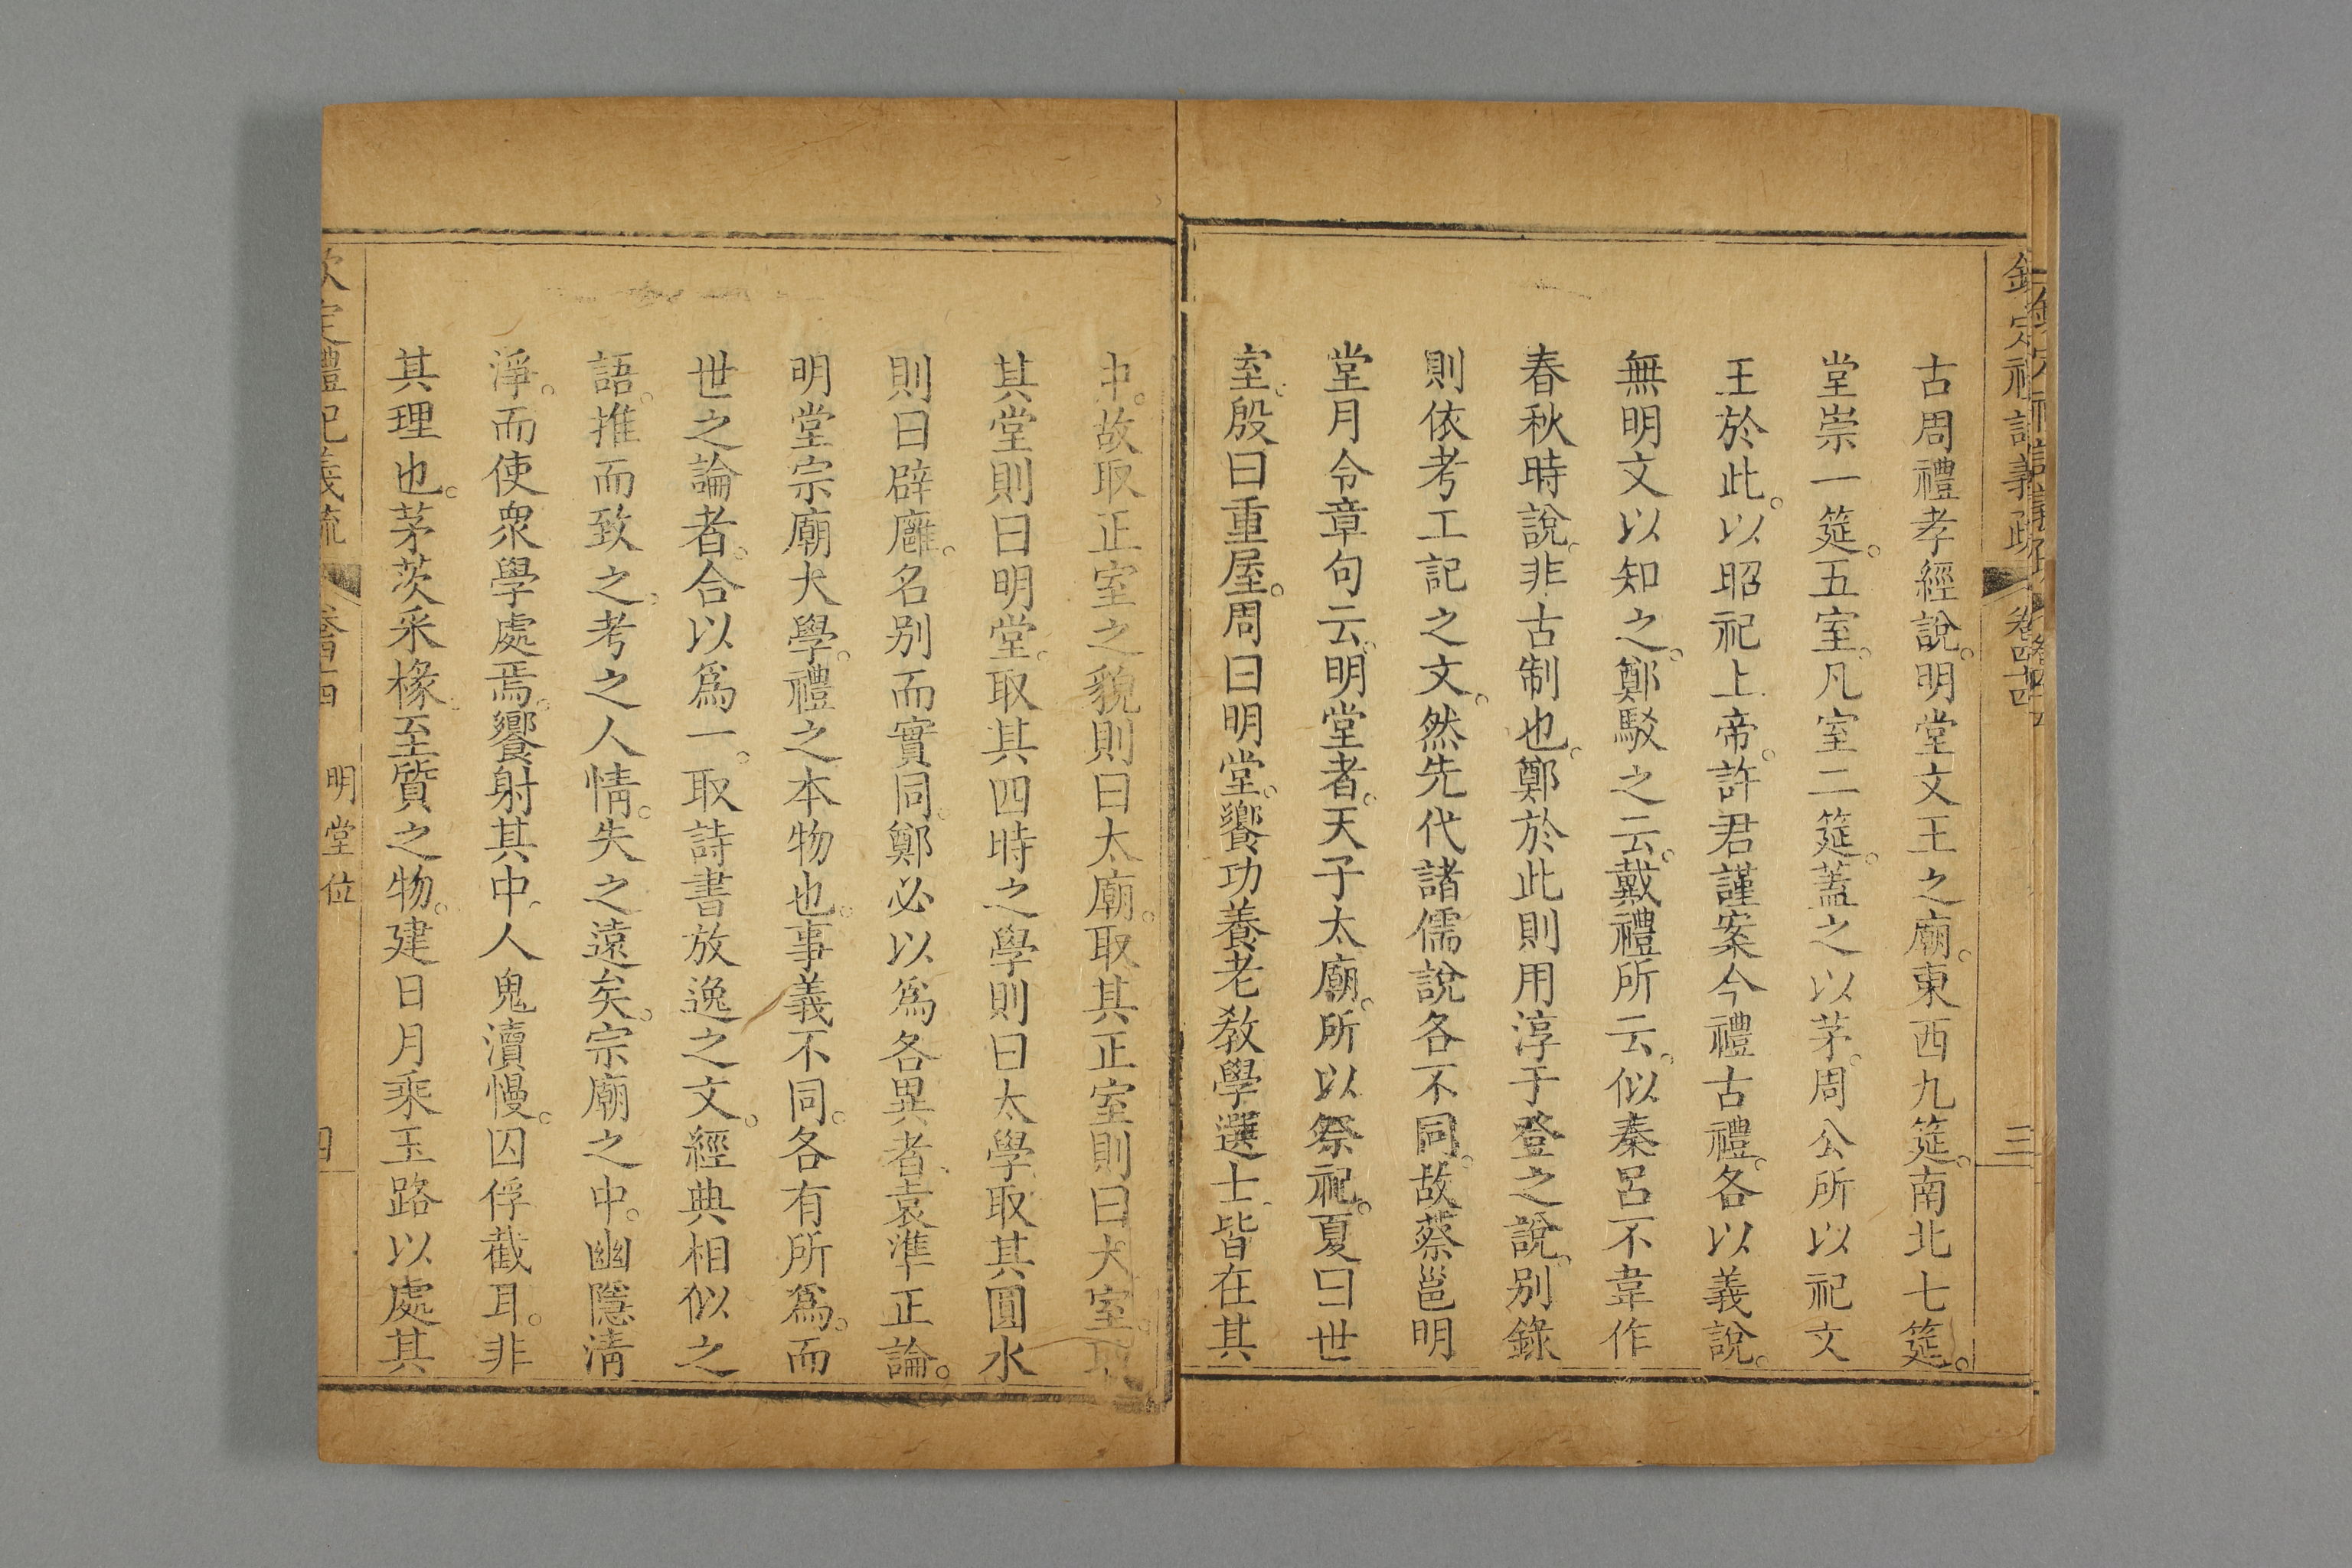 古周禮孝經說。明堂文王之廟。東西九筵。南北七筵。
堂崇一筵。五室。凡室二筵。蓋之以茅。周公所以祀文
王於此。以昭祀上帝。許君謹案今禮古禮。各以義說。
無明文以知之。鄭駁之云。戴禮所云。似秦呂不韋作
春秋時說。非古制也。鄭於此則用淳于登之說。別錄
則依考工記之文。然先代諸儒說各不同。故蔡邕明
堂月令章句云。明堂者。天子太廟。所以祭祀。夏曰世
室。殷曰重屋。周曰明堂。饗功養老教學選士。皆在其
中。故取正室之貌則曰太廟。取其正室則曰大室。取
其堂則曰明堂。取其四時之學則曰太學取其圓水
則曰辟廱。名別而實同。鄭必以爲各異者。袁準正論。
明堂宗廟大學。禮之本物也。事義不同。各有所爲。而
世之論者。合以爲一。取詩書放逸之文。經典相似之
語。推而致之。考之人情。失之遠矣。宗廟之中。幽隱淸
淨。而使衆學處焉。饗射其中。人鬼瀆慢。囚俘截耳。非
其理也。茅茨采椽。至質之物。建日月乘玉路以處其
明堂位